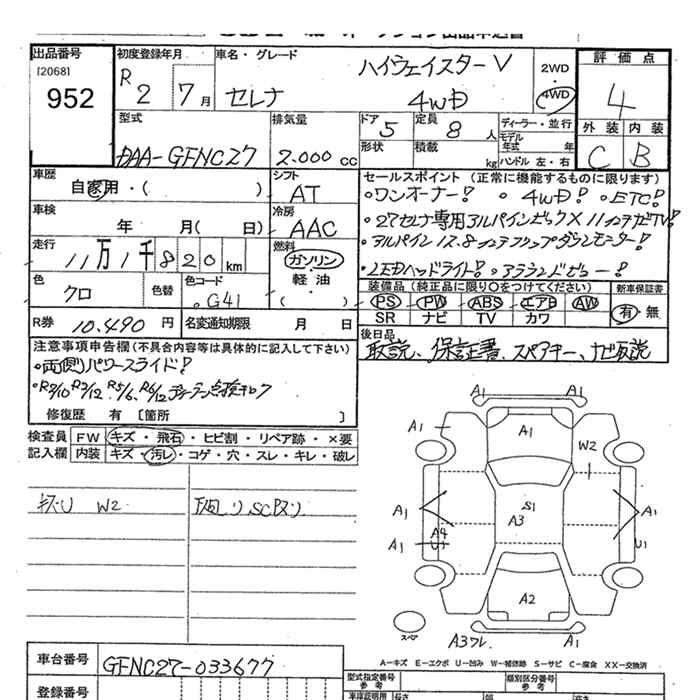 出品番号 初度登録年月 車名・グレード 評価点
[2068]
952
R 2 7月
ハイウェイスターV
セレナ 4WD
2WD
4WD
4
型式 排気量 ドア 定員 ディーラー・並行 外装 内装
DAA-GFNC27 2.000 cc 5 8人 モデル年式 年
形状 積載 kg ハンドル 左・右
C B
車歴 自家用・( )
シフト
AT
セールスポイント(正常に機能するものに限ります)
・ワンオーナー! ・4WD! ・ETC!
車検 年 月( 日)
冷房
AAC
・27セレナ専用アルパインビックX 11インチナビTV!
・アルパイン12.8インチフリップダウンモニター!
・LEDヘッドライト!・アラウンドビュー!
走行
11万1千820km
燃料
ガソリン・軽油・( )
色 色替 色コード
クロ G41
装備品(純正品に限り○をつけてください) 新車保証書
PS PW ABS エアB AW 有・無
SR ナビ TV カワ
R券 10.490円 名変通知期限 月 日
後日品
取説、保証書、スペアキー、ナビ取説
注意事項申告欄(不具合内容等は具体的に記入して下さい)
・両側パワースライド!
・R2/10 R3/12 R5/6 R6/12 ディーラー点検キロク
修復歴 有 [箇所 ]
検査員 FW キズ・飛石・ヒビ割・リペア跡・×要
記入欄 内装 キズ・汚レ・コゲ・穴・スレ・キレ・破レ
キズU W2
下廻リ SCサリ
A1
A1 A1
W2
A1 S1 A1
A3
A4
A1 U1 U1
A2
スペア A3フレ A1
A-キズ E-エクボ U-凹み W-補修跡 S-サビ C-腐食 XX-交換済
車台番号 GFNC27-033677
型式指定番号 参考 類別区分番号 参考
登録番号
車庫証明用 長さ 幅 高さ